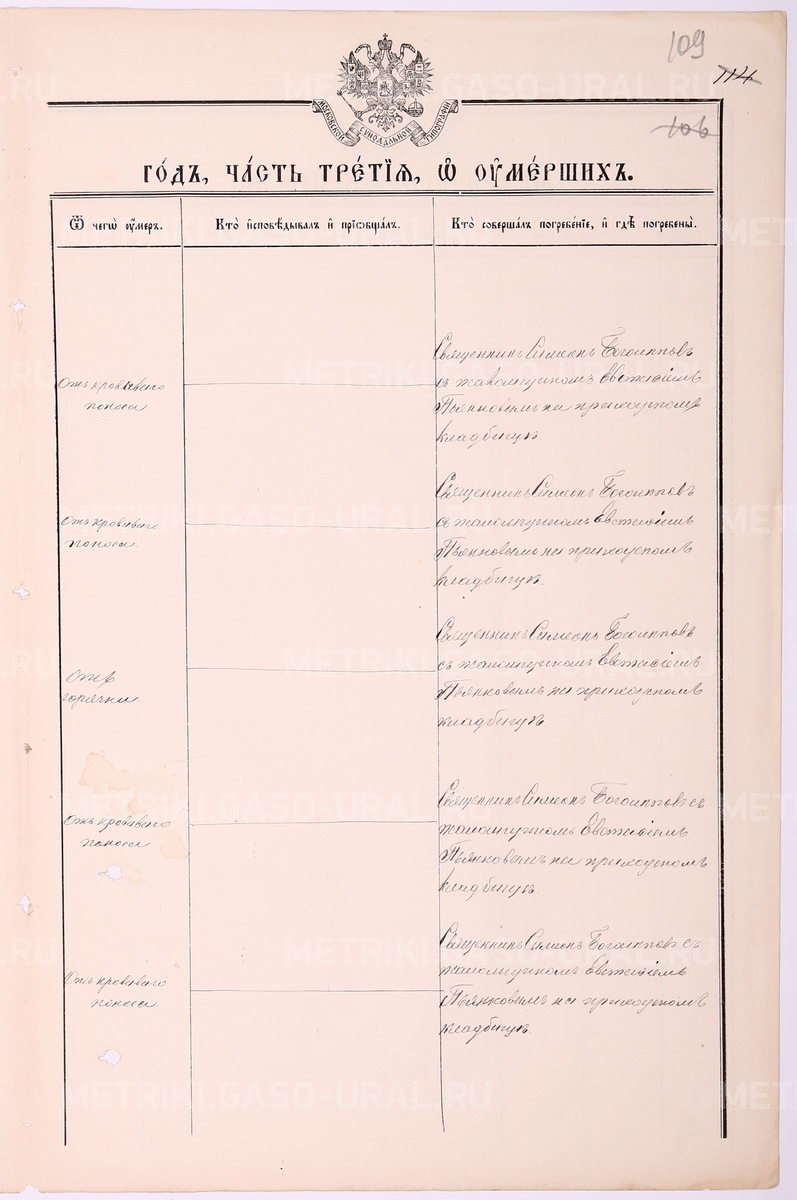 109
114
106
МОСКОВСКОЙ СУНОДАЛЬНОЙ ТИПОГРАФИИ
ГО́ДЪ, ЧА́СТЬ ТРЕ́ТІѦ, Ѡ ОУМЕ́РШИХЪ.
Ѿ чегѡ̀ оу́меръ.
Кто̀ и҆сповѣ́дывалъ и҆ прїѡбща́лъ.
Кто̀ соверша́лъ погребе́нїе, и҆ гдѣ̀ погребены̀.
Отъ кроваваго
поноса
Священникъ Симеонъ
Евгеніемъ
Пьянковымъ на приходскомъ
кладбищѣ.
Отъ кроваваго
поноса.
Священникъ Симеонъ
Евгеніемъ
Пьянковымъ на приходскомъ
кладбищѣ.
Отъ
горячки
Священникъ Симеонъ
Евгеніемъ
Пьянковымъ на приходскомъ
кладбищѣ
Отъ кроваваго
поноса
Священникъ Симеонъ
Евгеніемъ
Пьянковымъ на приходскомъ
кладбищѣ.
Отъ кроваваго
поноса
Священникъ Симеонъ
Евгеніемъ
Пьянковымъ на приходскомъ
кладбищѣ
METRIKI.GASO-URAL.RU